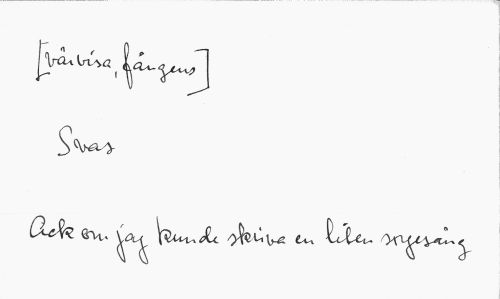 [vårvisa, fångens]
Svas
Ack om jag kunde skriva en liten sorgesång